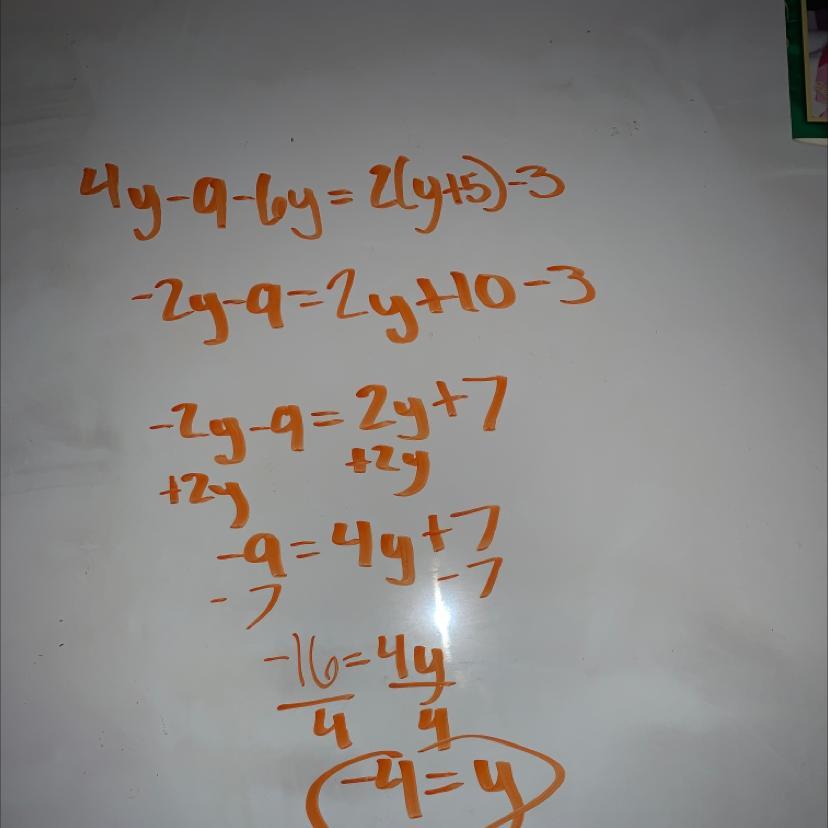 4y-9-6y=2(y+5)-3
-2y-9=2y+10-3
-2y-9=2y+7
+2y +2y
-9=4y+7
-7 -7
-16=4y
4 4
-4=y